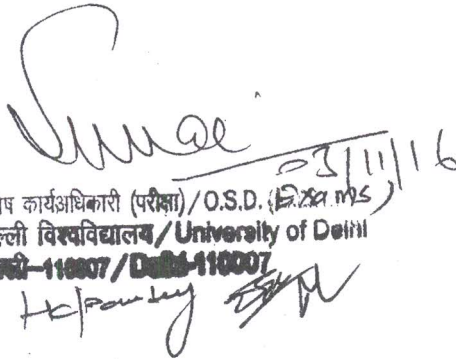 03/11/16
ष कार्यअधिकारी (परीक्षा)/O.S.D. (Exams)
ल्ली विश्वविद्यालय/University of Delhi
ल्ली-110007/Delhi-110007